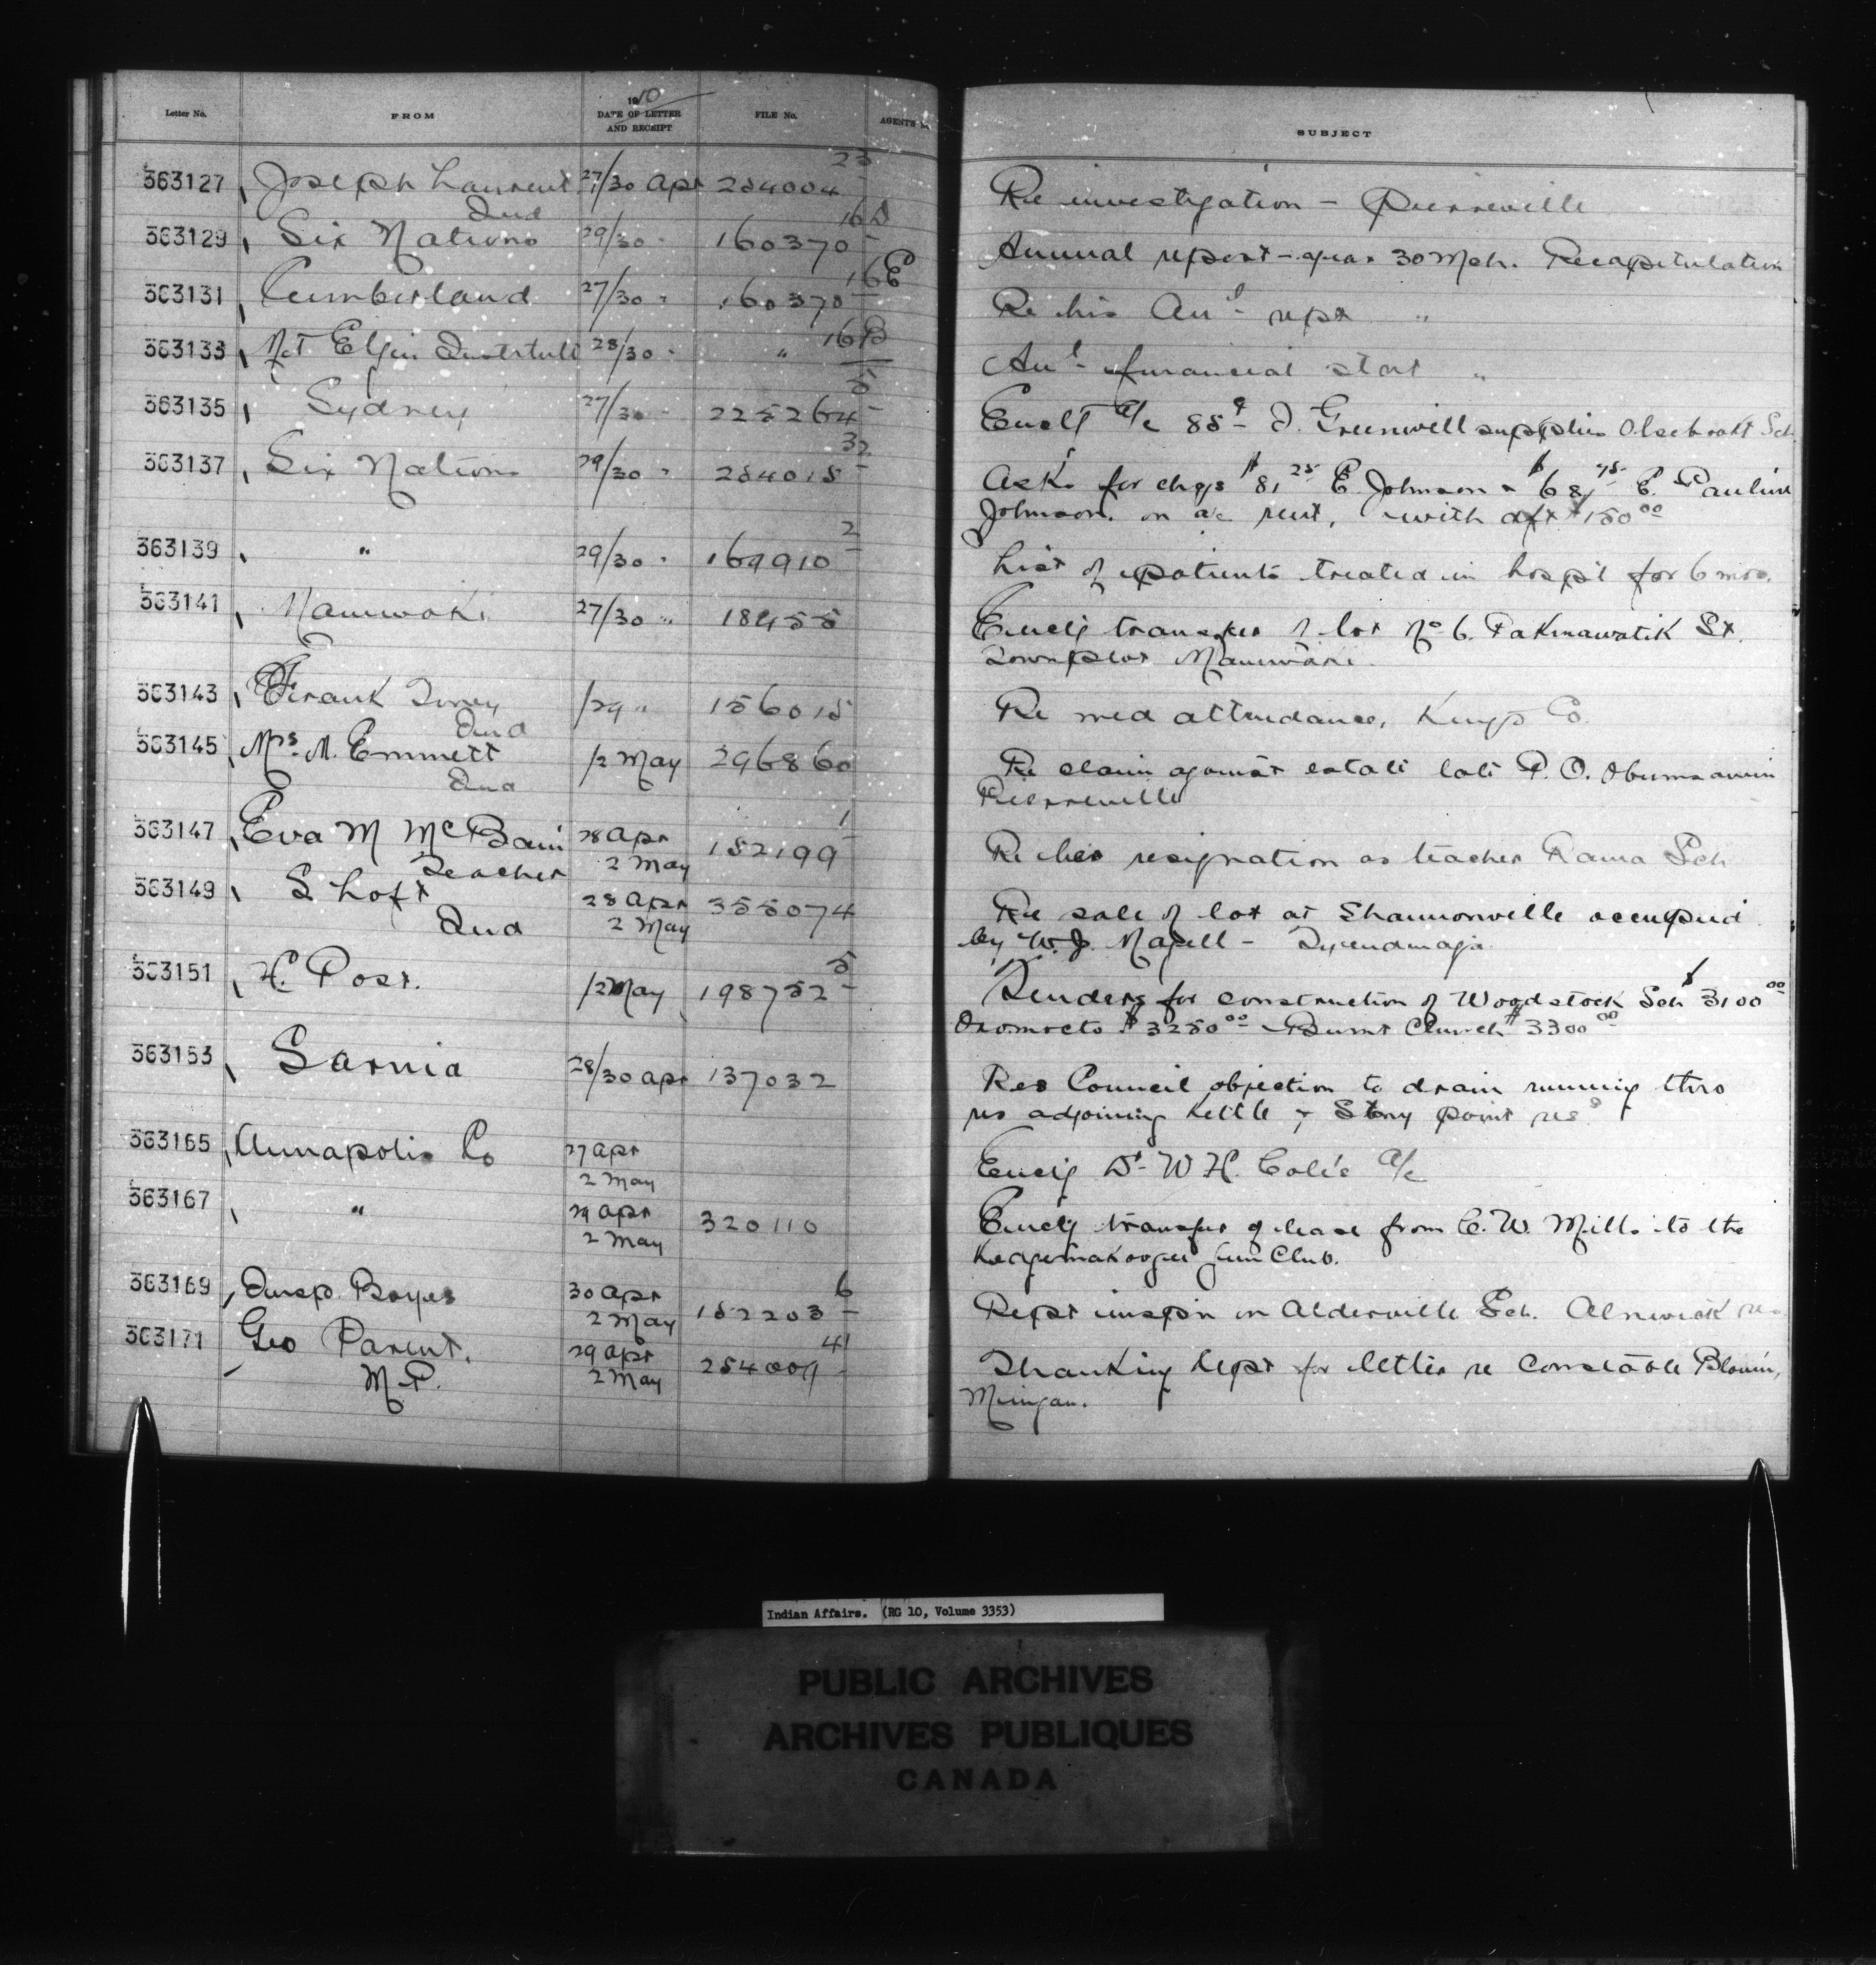 Letter No. FROM 1910 DATE OF LETTER AND RECEIPT FILE No. AGENTS SUBJECT
363127 Joseph Laurent Ind 27/30 Apr 254004 23 Re investigation - Pierreville
363129 Six Nations 29/30 " 160370 16D Annual report - year 30 Mch. Recapitulation
363131 Cumberland 27/30 " 160370 16E Re his Anl rept "
363133 Mt. Elgin Institute 28/30 " " 16B Anl financial stat "
363135 Sydney 27/30 " 225264 5 a/c J. Greenwell supplies Sch
363137 Six Nations 29/30 " 254015 32 Asks for chqs $81 25 E. Johnson & $68 75 E. Pauline
Johnson. on a/c rent, with dft $150 00
363139 " 29/30 " 169910 2 List of patients treated in hospt for 6 mos.
363141 Maniwaki 27/30 " 18455 Enclg transfer of lot No 6. Pakinawatik St.
Townplot Maniwaki.
363143 Frank Ind /29 " 156015 Re med attendance, Kings Co.
363145 Mrs. M. Emmett Ind /2 May 296860 Re claim against estate late P. O. Obumsawin
Pierreville
363147 Eva M McBain Teacher 28 Apr 2 May 182199 1 Re her resignation as teacher Rama Sch
363149 S Loft Ind 28 Apr 2 May 355074 Re sale of lot at Shannonville occupied
by W. J. Magill - Tyendinaga
363151 H. Post. /2 May 198752 5 Tenders for construction of Woodstock Sch $3100 00
Oromocto $3250 00 Burnt Church $3300 00
363153 Sarnia 28/30 Apr 137032 Res Council objection to drain running thro
res adjoining Kettle & Stony point res
363165 Annapolis Co 27 Apr 2 May Enclg Dr W H. Cole's a/c
363167 " 29 Apr 2 May 320110 Enclg transfer of lease from C. W. Mills to the
Kedgemakoogee Gun Club.
363169 Insp. Boyes 30 Apr 2 May 152203 6 Rept inspn on Alderville Sch. Alnwick res
363171 Geo Parent, M.P. 29 Apr 2 May 254009 41 Thanking Dept for letter re Constable Blouin,
Mingan.
Indian Affairs. (RG 10, Volume 3353)
PUBLIC ARCHIVES
ARCHIVES PUBLIQUES
CANADA